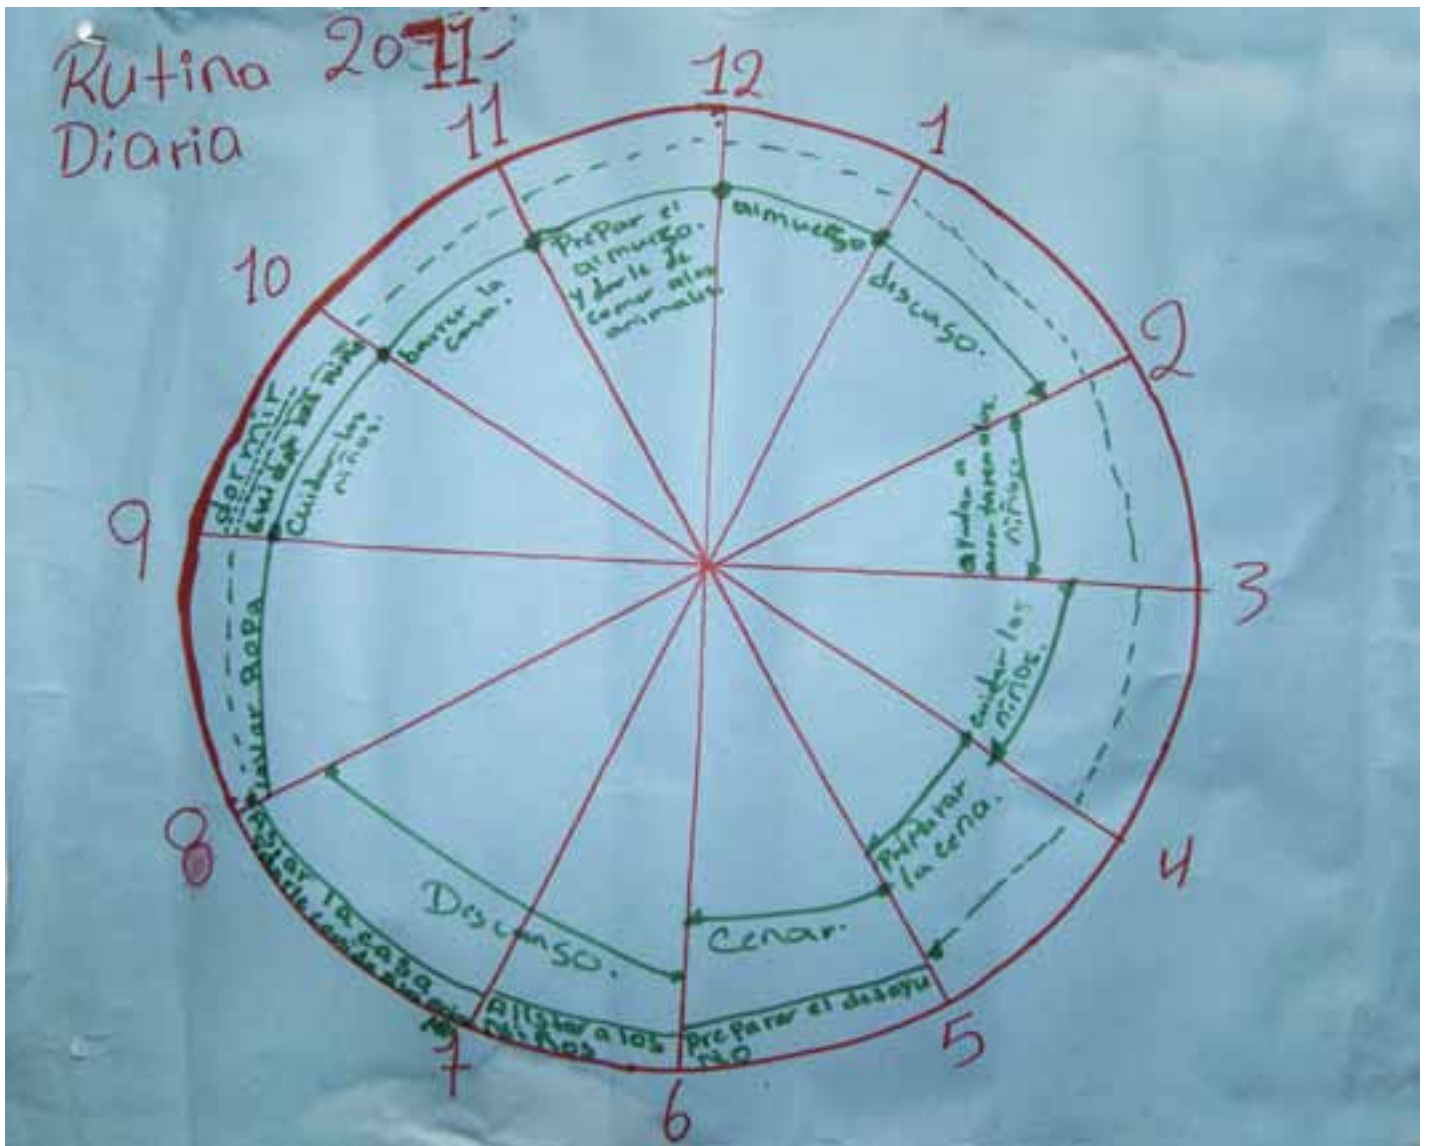 Rutina 2011
Diaria
12
1
2
3
4
5
6
7
8
9
10
11
almuerzo
discanso.
ayudar a
niños
cuidar los
niños.
Preparar
la cena.
Cenar.
Preparar el desayu
no
Allstar a los
niños
Descanso.
Asiar la casa
Lavar Ropa
dormir
cuidar los niños
Cuidar los
niños.
barrer la
casa.
PrePar el
almuerzo.
y darle de
comer a los
animales.